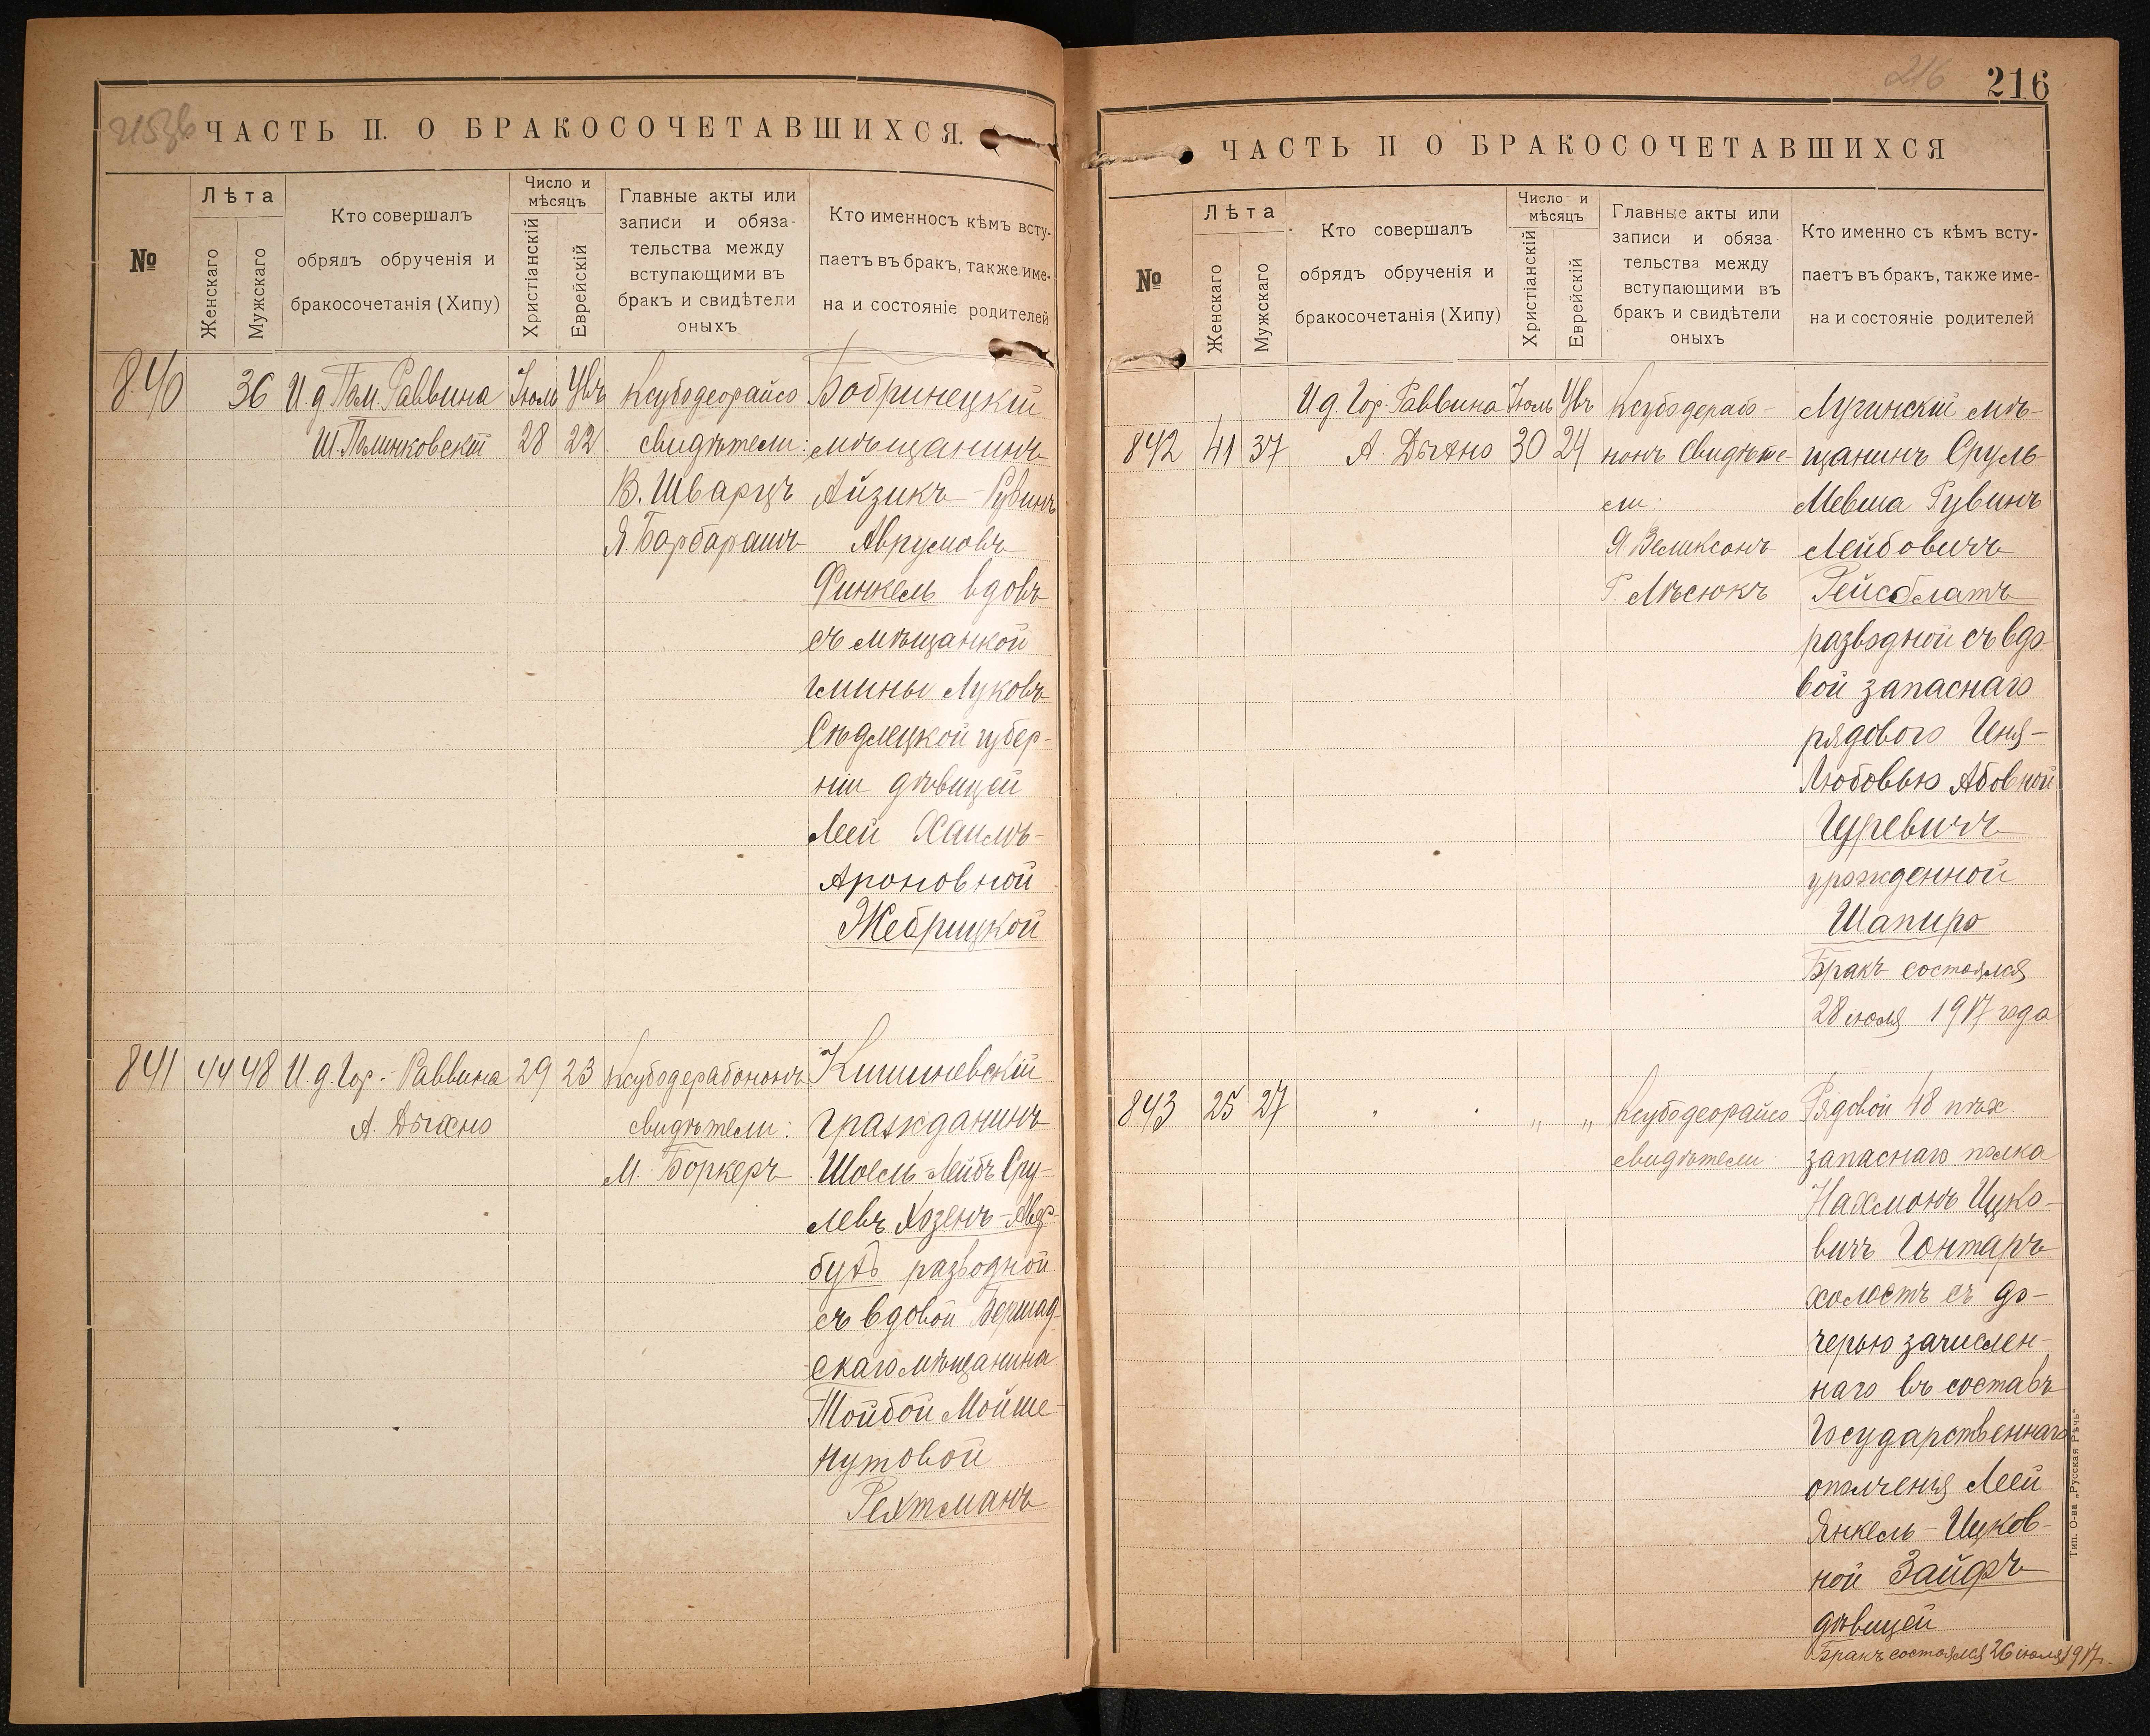 ЧАСТЬ II. О БРАКОСОЧЕТАВШИХСЯ.
№
Лѣта
Женскаго
Мужскаго
Кто совершалъ
обрядъ обрученія и
бракосочетанія (Хипу)
Число и
мѣсяцъ
Христіанскій
Еврейскій
Главные акты или
записи и обяза-
тельства между
вступающими въ
бракъ и свидѣтели
оныхъ
Кто именносъ кѣмъ всту-
паетъ въ бракъ, также име-
на и состояніе родителей
840
36
И. д. Пом. Раввина
Ш. Полинковскій
Іюль
28
Увъ
22
Ксубодеорайсо
свидѣтели:
В. Шварцъ
Я. Барбарашъ
Бобринецкій
мѣщанинъ
Айзикъ-Рувинъ
Аврумовъ
Финкель вдовъ
съ мѣщанкой
гмины Луковъ
Сѣдлецкой губер-
ніи дѣвицей
Леей Хаимъ-
Ароновной
Жебрицкой
841
44
48
И. д. Гор. Раввина
А. Дыхно
29
23
Ксубодерабононъ
свидѣтели:
М. Боркеръ
Кишиневскій
гражданинъ
Шоель-Лейбъ Сру-
левъ Хозенъ-Авер-
бухъ разводной
съ вдовой Бершад-
скаго мѣщанина
Тойбой Мойше-
Нутовой
Рехтманъ
216
216
ЧАСТЬ II О БРАКОСОЧЕТАВШИХСЯ
№
Лѣта
Женскаго
Мужскаго
Кто совершалъ
обрядъ обрученія и
бракосочетанія (Хипу)
Число и
мѣсяцъ
Христіанскій
Еврейскій
Главные акты или
записи и обяза
тельства между
вступающими въ
бракъ и свидѣтели
оныхъ
Кто именно съ кѣмъ всту-
паетъ въ бракъ, также име-
на и состояніе родителей
842
41
37
И. д. Гор. Раввина
А. Дыхно
Іюль
30
Увъ
24
Ксубодерабо-
нонъ Свидѣте
ли:
Я. Великсонъ
Г. Лѣсюкъ
Лугинскій мѣ-
щанинъ Сруль-
Мевша Рувинъ
Лейбовичъ
Рейсблатъ
разводной съ вдо-
вой запаснаго
рядового Геня-
Любовью Абовной
Гуревичъ
урожденной
Шапиро
Бракъ состоялся
28 іюля 1917 года
843
25
27
"
"
"
"
Ксубодеорайсо
свидѣтели
Рядовой 48 пѣх.
запаснаго полка
Нахмонъ Ицко-
вичъ Гонтаръ
холостъ съ до-
черью зачислен-
наго въ составъ
Государственнаго
ополченія Леей
Янкель-Ицков-
ной Зайфъ
дѣвицей
Бракъ состоялся 26 іюля 1917 г.
Тип. О-ва „Русская Рѣчь“